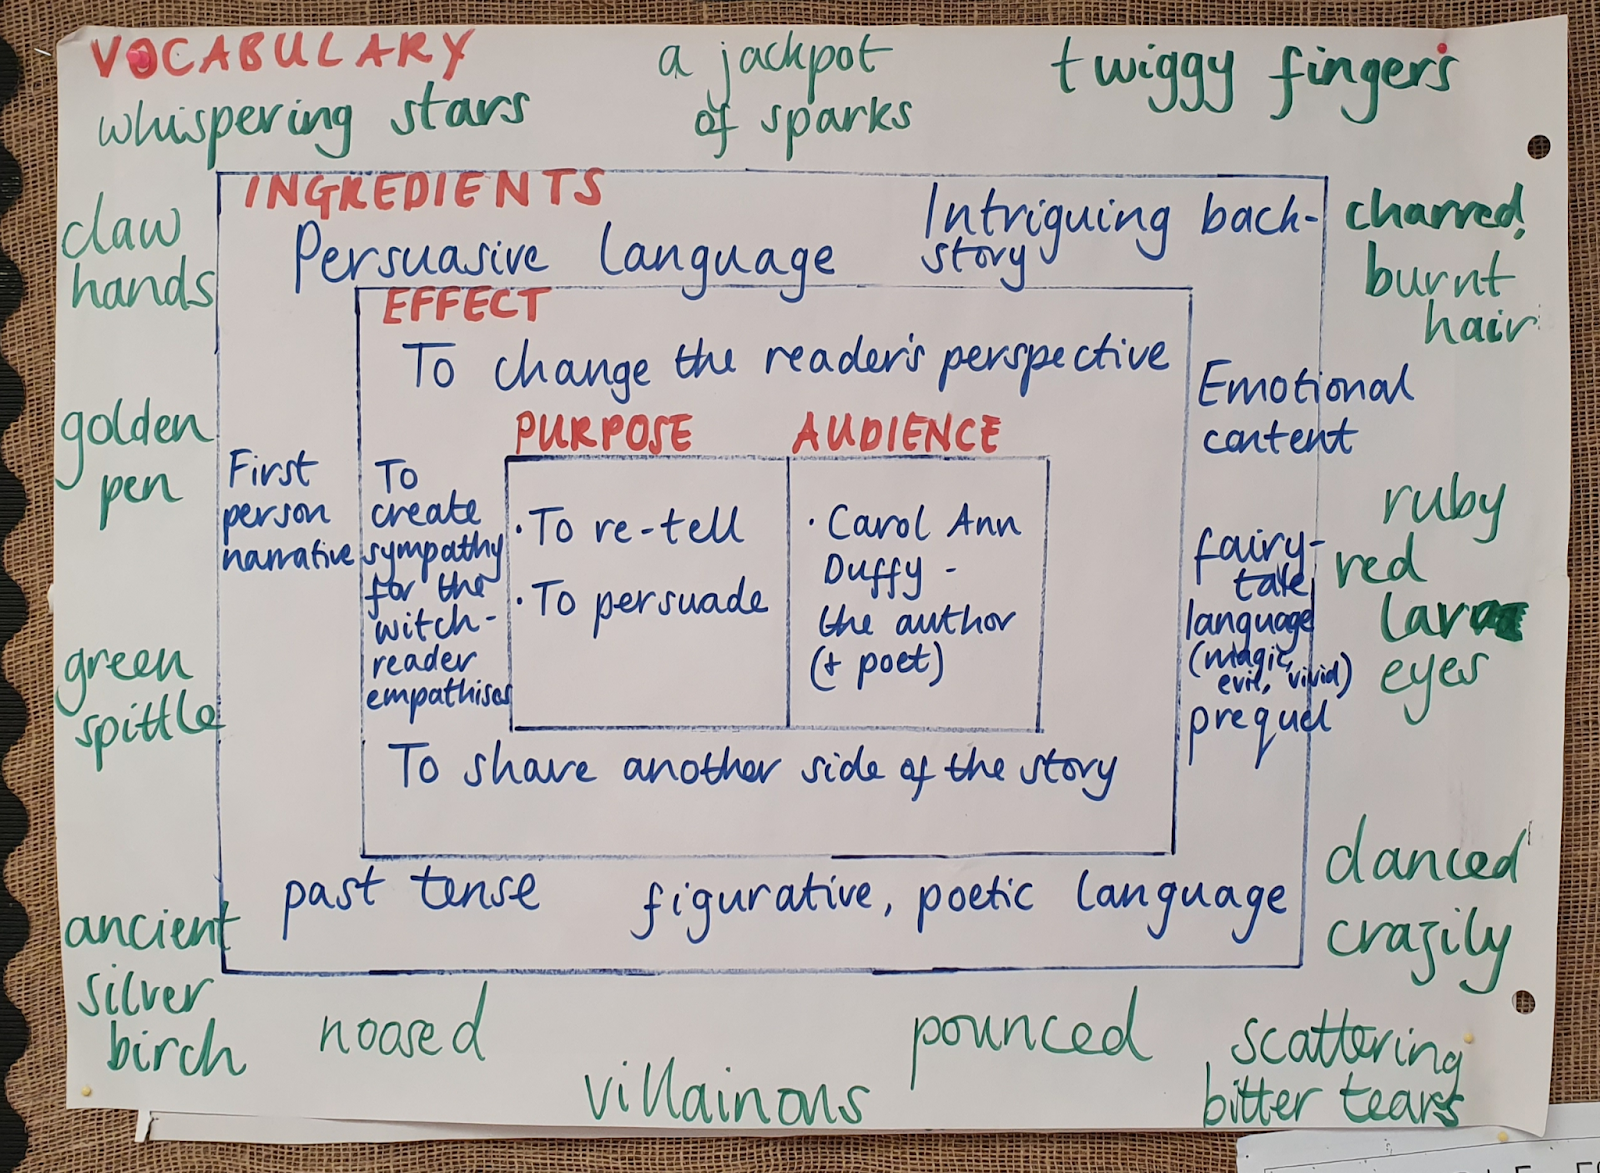 VOCABULARY
whispering stars
a jackpot
of sparks
twiggy fingers
claw
hands
golden
pen
green
spittle
ancient
silver
birch
noosed
villainous
pounced
scattering
bitter tears
charred,
burnt
hair
ruby
red
eyes
danced
crazily
INGREDIENTS
Persuasive language
Intriguing back-
story
First
person
narrative
Emotional
content
fairy-
tale
language
(magic,
evil, vivid)
prequel
past tense
figurative, poetic language
EFFECT
To change the reader's perspective
To
create
sympathy
for the
witch-
reader
empathises
To share another side of the story
PURPOSE
· To re-tell
· To persuade
AUDIENCE
· Carol Ann
Duffy -
the author
(+ poet)